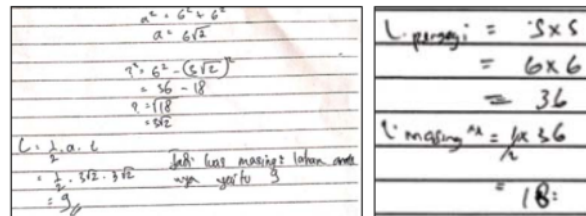 a² = 6² + 6²
a = 6√2
t² = 6² - (3√2)²
= 36 - 18
t = √18
= 3√2
L = 1/2 . a . t
= 1/2 . 3√2 . 3√2
= 9
Jadi luas masing² lahan
nya yaitu 9
L. persegi = S x S
= 6 x 6
= 36
L. masing²² = 1/2 x 36
= 18